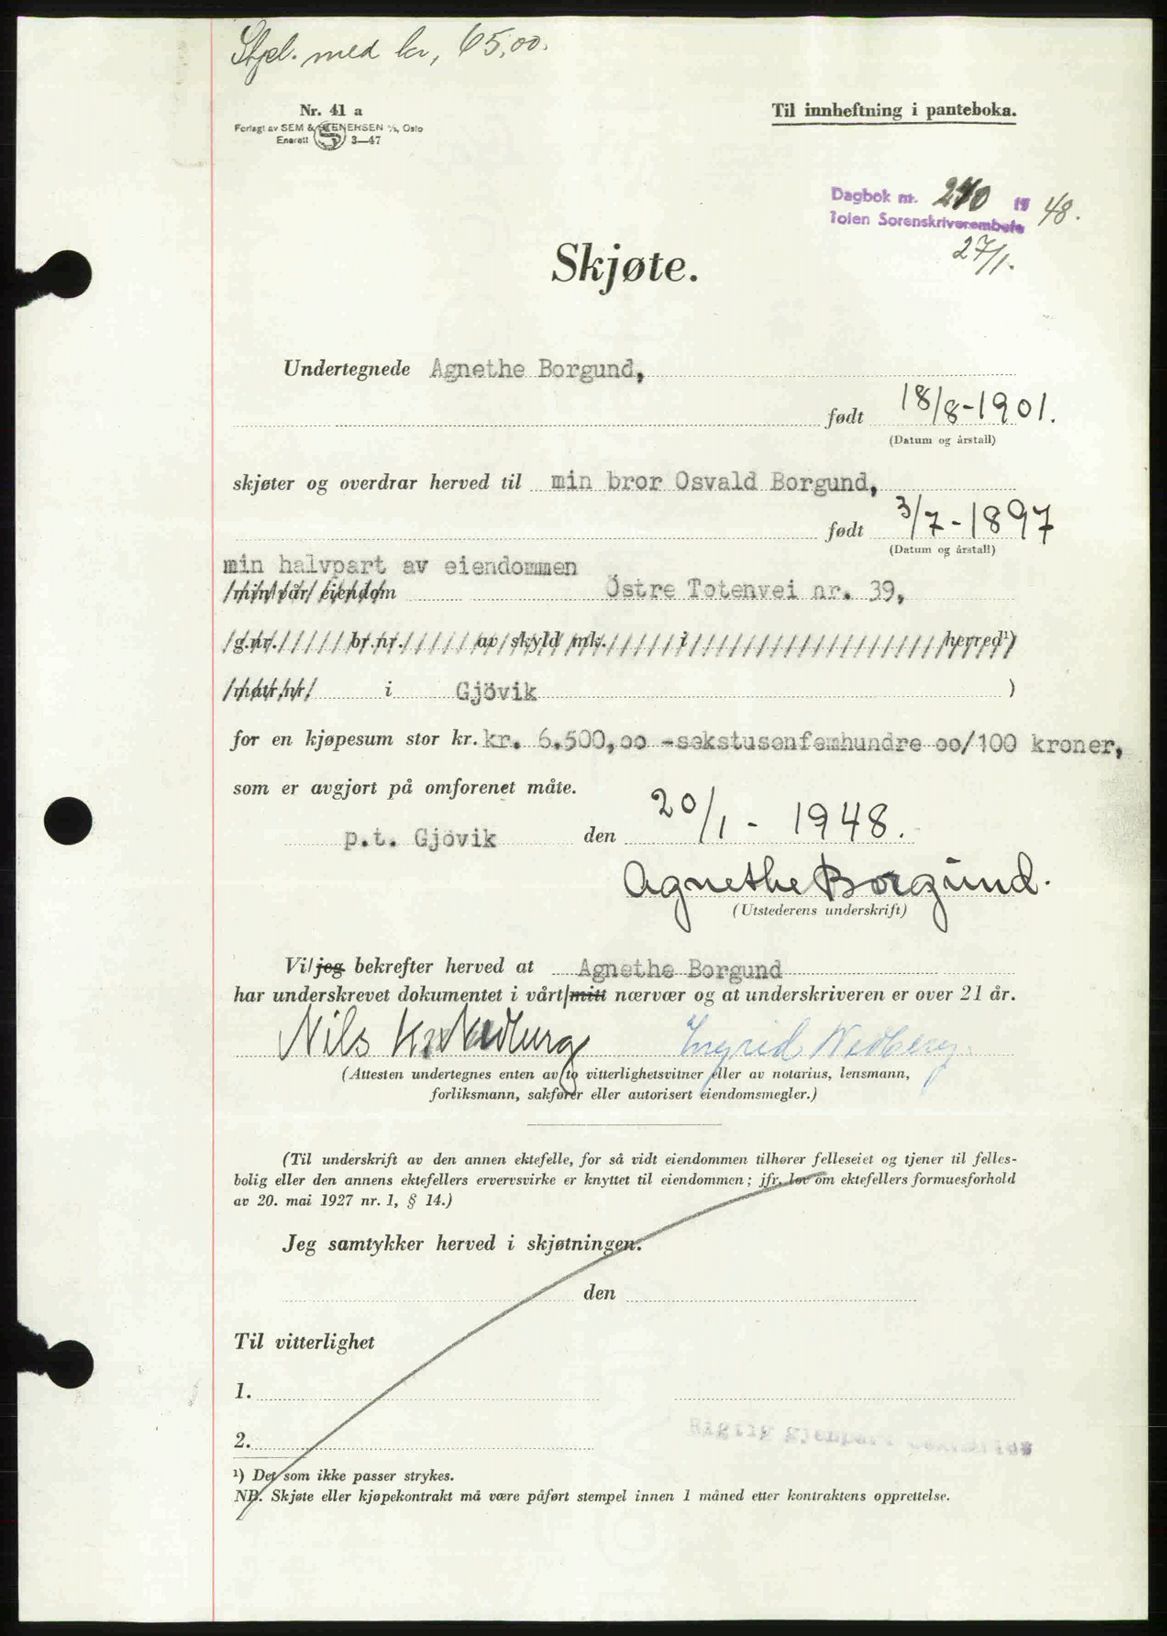 Stpl. med kr, 65,00.
Nr. 41 a
Forlagt av SEM & STENERSEN A/S, Oslo
Enerett 3—47
Til innheftning i panteboka.
Dagbok nr. 240 19 48.
Toten Sorenskriverembete
27/1.
Skjøte.
Undertegnede Agnethe Borgund,
født 18/8-1901.
(Datum og årstall)
skjøter og overdrar herved til min bror Osvald Borgund,
født 3/7-1897
(Datum og årstall)
min halvpart av eiendommen
min/vår/ eiendom Östre Totenvei nr. 39,
g.nr. br.nr. av skyld mk. i herred¹)
matr.nr. i Gjövik )
for en kjøpesum stor kr. kr. 6.500,oo -sekstusenfemhundre oo/100 kroner,
som er avgjort på omforenet måte.
p.t. Gjövik den 20/1 - 1948.
Agnethe Borgund.
(Utstederens underskrift)
Vi/jeg bekrefter herved at Agnethe Borgund
har underskrevet dokumentet i vårt/mitt nærvær og at underskriveren er over 21 år.
Nils Ingrid Wedberg.
(Attesten undertegnes enten av to vitterlighetsvitner eller av notarius, lensmann,
forliksmann, sakfører eller autorisert eiendomsmegler.)
(Til underskrift av den annen ektefelle, for så vidt eiendommen tilhører felleseiet og tjener til felles-
bolig eller den annens ektefellers ervervsvirke er knyttet til eiendommen; jfr. lov om ektefellers formuesforhold
av 20. mai 1927 nr. 1, § 14.)
Jeg samtykker herved i skjøtningen.
den
Til vitterlighet
1.
2.
Rigtig gjenpart bekreftes
¹) Det som ikke passer strykes.
NB. Skjøte eller kjøpekontrakt må være påført stempel innen 1 måned etter kontraktens opprettelse.